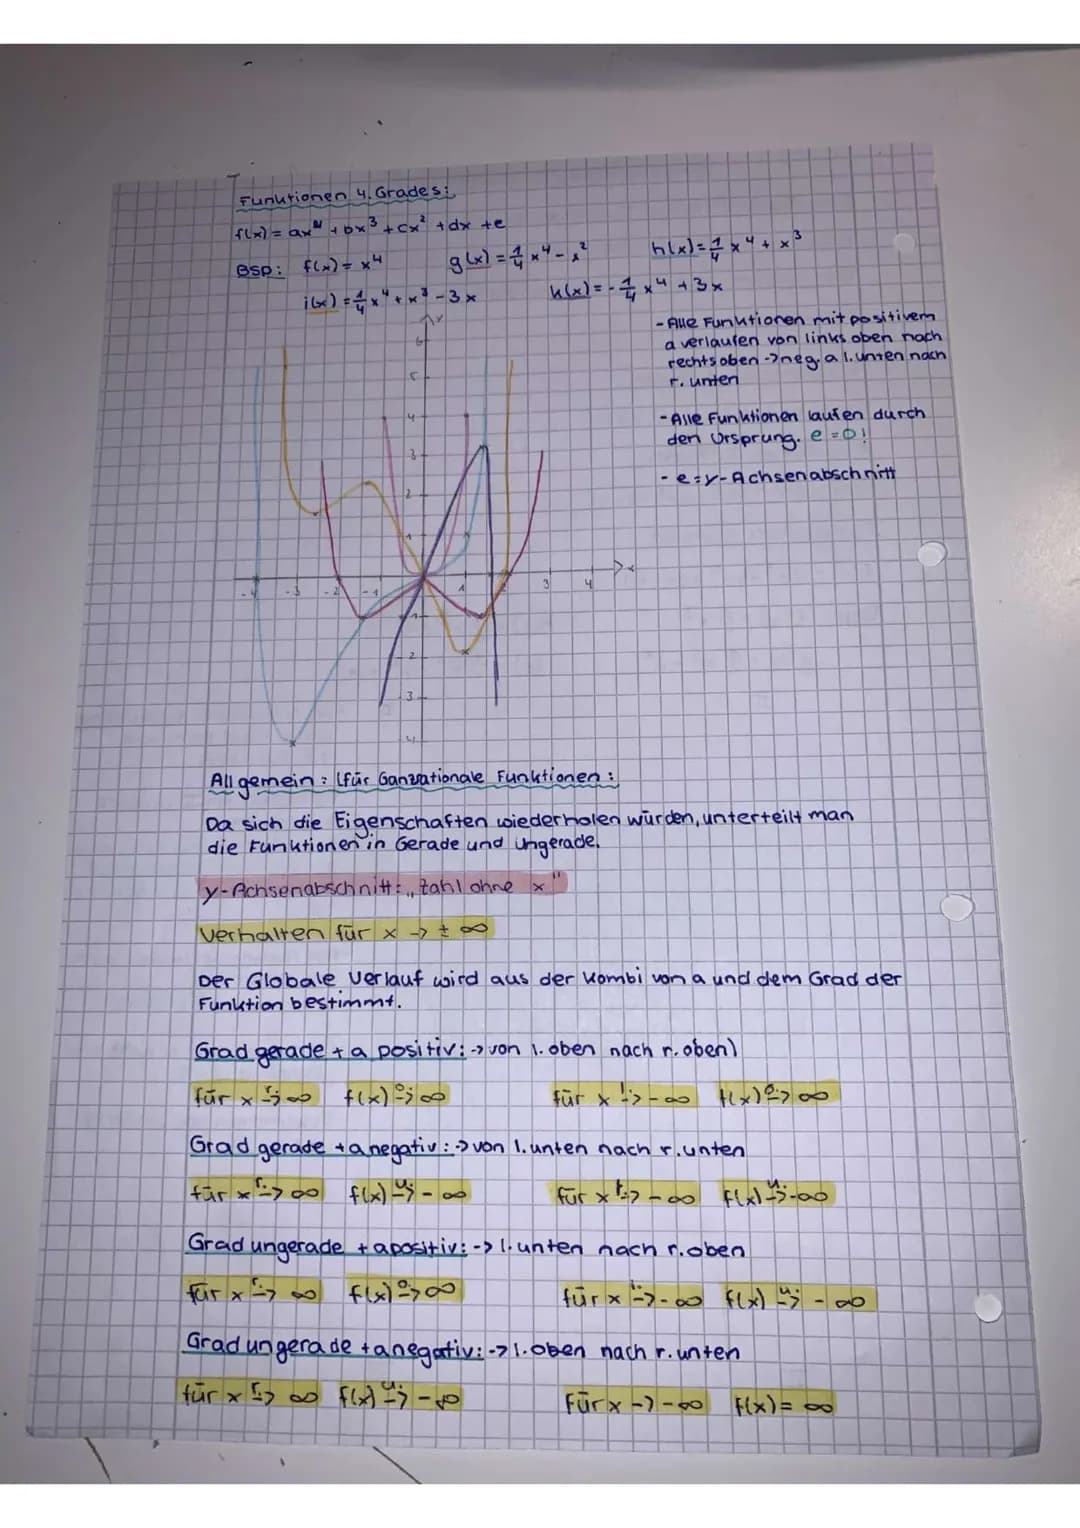 Funktionen 4. Grades:
f(x) = ax⁴ + bx³ + cx² + dx + e
BSP: f(x) = x⁴ g(x) = 1/4 x⁴ - x² h(x) = 1/4 x⁴ + x³
i(x) = 1/4 x⁴ + x³ - 3x k(x) = - 1/4 x⁴ + 3x
- Alle Funktionen mit positivem
a verlaufen von links oben nach
rechts oben -> neg. a l. unten nach
r. unten
- Alle Funktionen laufen durch
den Ursprung. e = 0!
- e = y-Achsenabschnitt
y
6
5
4
3
2
1
-4 -3 -2 -1 1 3 4 x
-1
2
3
4
Allgemein: (für Ganzrationale Funktionen:
Da sich die Eigenschaften wiederholen würden, unterteilt man
die Funktionen in Gerade und ungerade.
y-Achsenabschnitt: „Zahl ohne x"
Verhalten für x -> ± ∞
Der Globale Verlauf wird aus der Kombi von a und dem Grad der
Funktion bestimmt.
Grad gerade + a positiv: -> von l. oben nach r. oben)
für x r.-> ∞ f(x) o.-> ∞ für x l.-> -∞ f(x) o.-> ∞
Grad gerade + a negativ: -> von l. unten nach r. unten
für x r.-> ∞ f(x) u.-> - ∞ für x l.-> -∞ f(x) u.-> -∞
Grad ungerade + a positiv: -> l. unten nach r. oben
für x r.-> ∞ f(x) o.-> ∞ für x l.-> -∞ f(x) u.-> - ∞
Grad ungerade + a negativ: -> l. oben nach r. unten
für x r.-> ∞ f(x) u.-> -∞ Für x -> -∞ f(x) = ∞